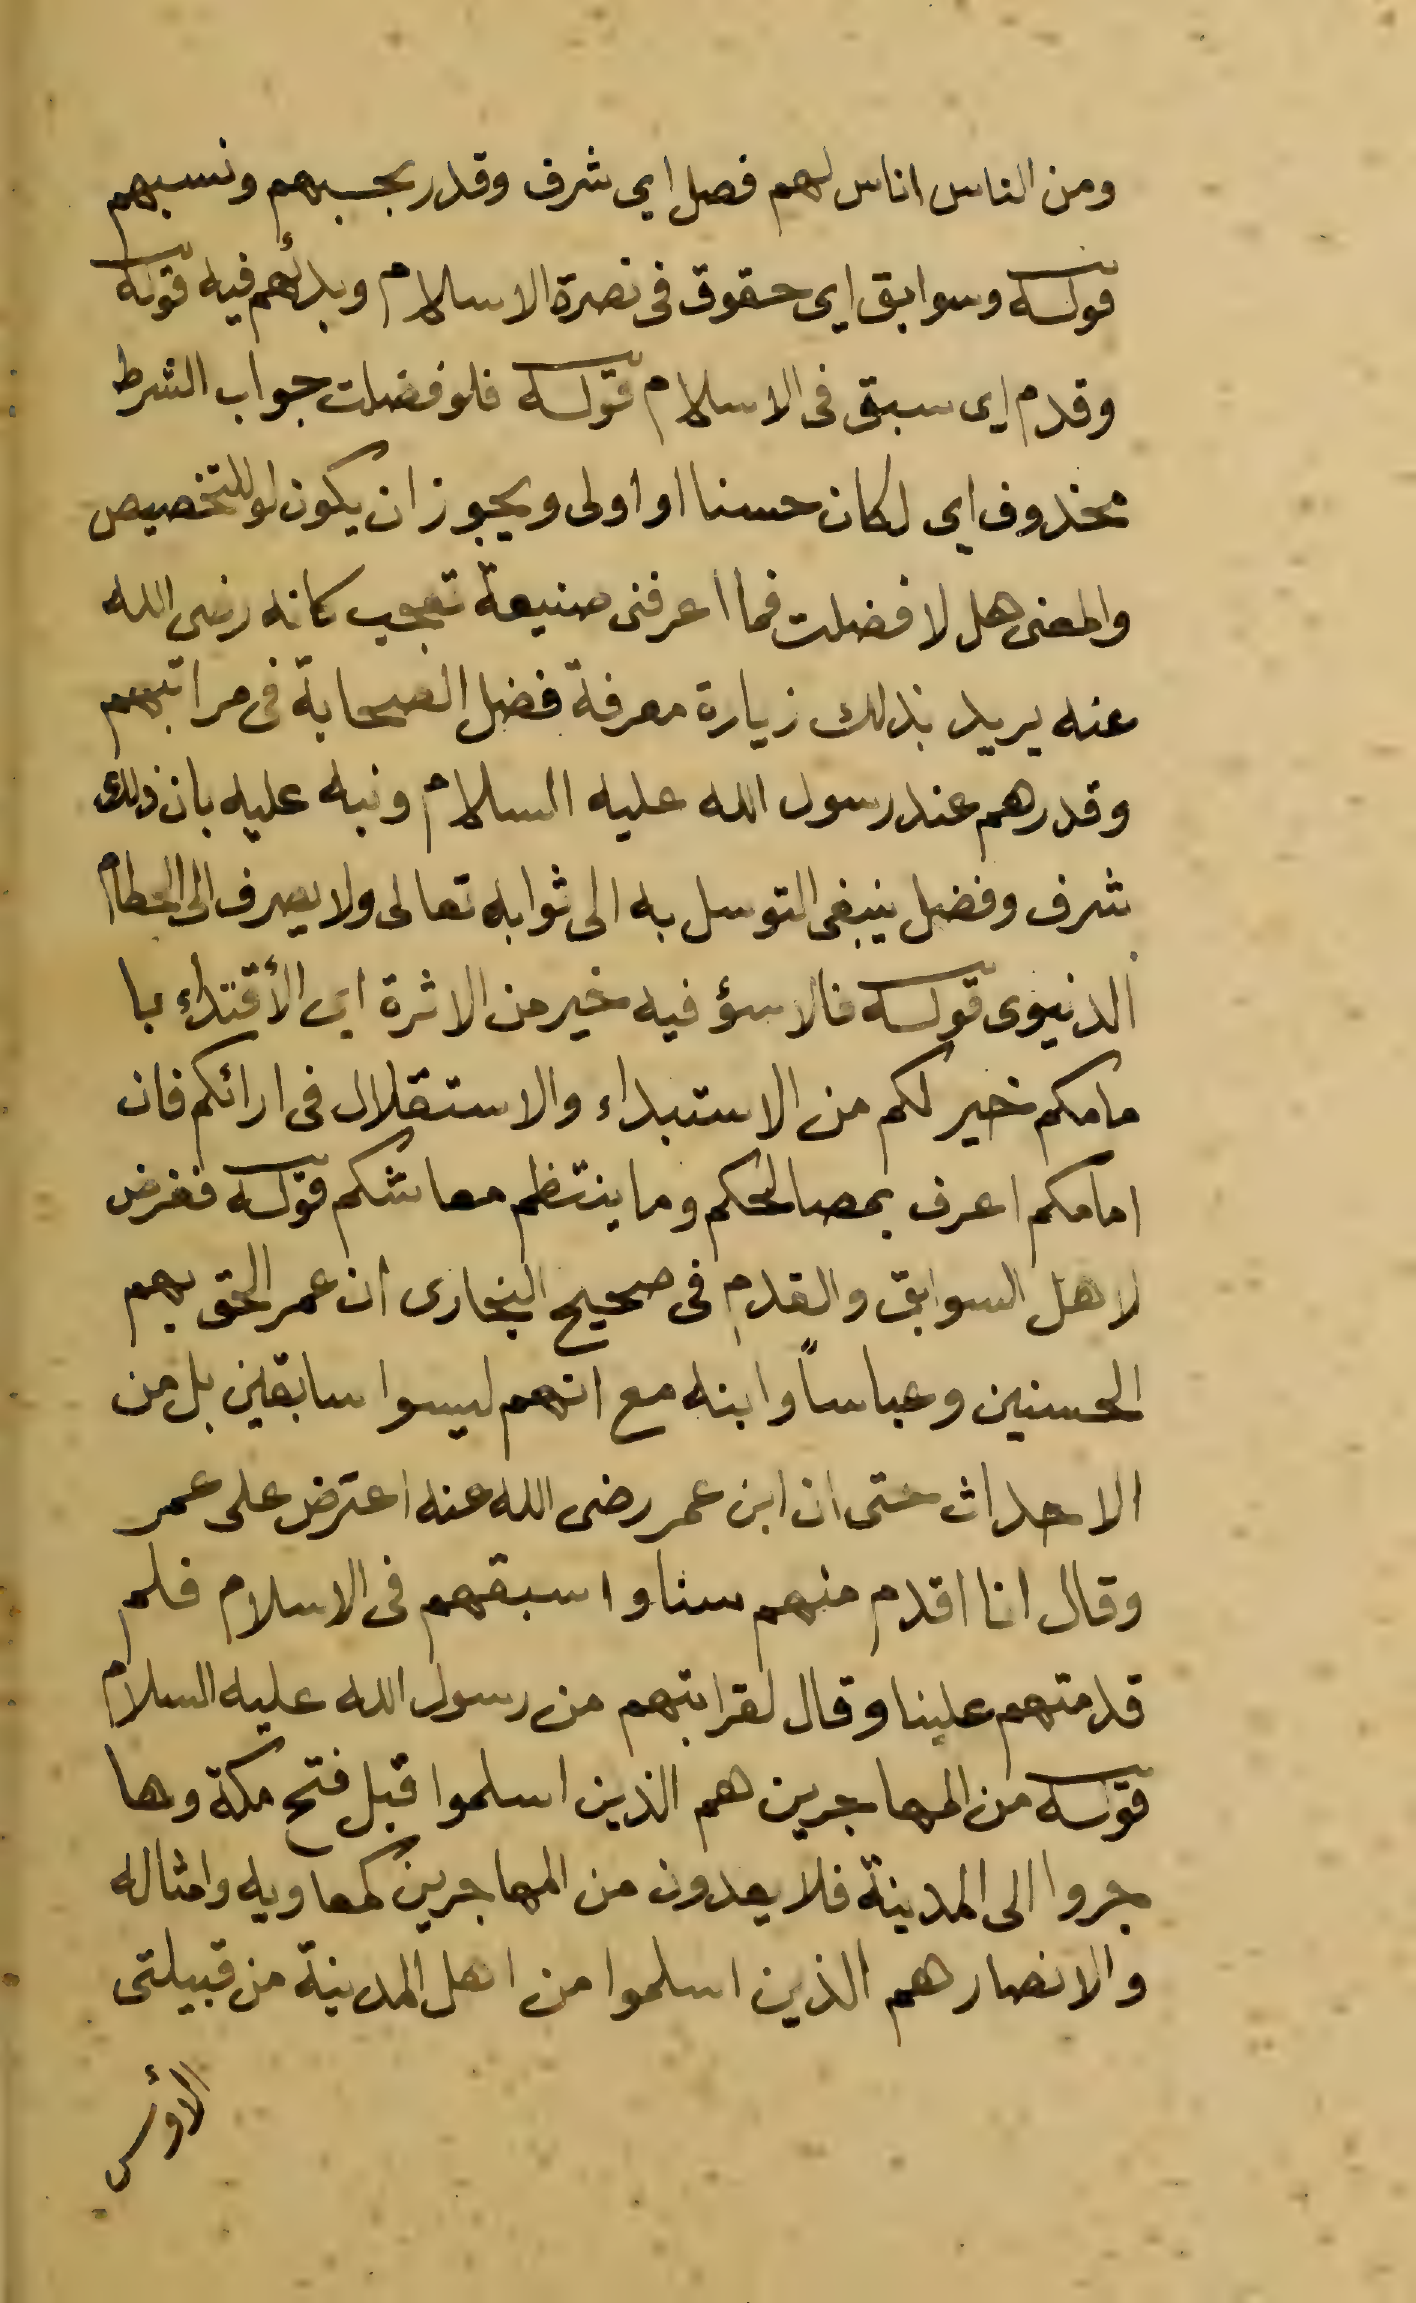 ومن الناس اناس لهم فصل اى شرف وقدر بحسبهم ونسبهم
قوله وسوابق اى حقوق فى نصرة الاسلام وبدأهم فيه قوله
وقدم اى سبق فى الاسلام قوله فلو فضلت جواب الشرط
محذوف اى لكان حسنا او اولى ويجوز ان يكون لو للتخصيص
والمعنى هل لا فضلت فما اعرفنى صنيعة تعجب كانه رضى الله
عنه يريد بذلك زيارة معرفة فضل الصحابة فى مراتبهم
وقدرهم عند رسول الله عليه السلام ونبه عليه بان ذلك
شرف وفضل ينبغى التوسل به الى ثوابه تعالى ولا يصرف الى الحطام
الدنيوى قوله فالاسؤ فيه خير من الاثرة اى الأقتداء با
مامكم خير لكم من الاستبداء والاستقلال فى ارائكم فان
امامكم اعرف بمصالحكم وما ينتظم معاشكم قوله ففرض
لاهل السوابق والقدم فى صحيح البخارى ان عمر الحق بهم
الحسنين وعباساً وابنه مع انهم ليسوا سابقين بل من
الاحداث حتى ان ابن عمر رضى الله عنه اعترض على عمر
وقال انا اقدم منهم سنا واسبقهم فى الاسلام فلم
قدمتهم علينا وقال لقرابتهم من رسول الله عليه السلام
قوله من المهاجرين هم الذين اسلموا قبل فتح مكة وها
جروا الى المدينة فلا يعدون من المهاجرين كمعاويه وامثاله
والانصار هم الذين اسلموا من اهل المدينة من قبيلتى
الأوس